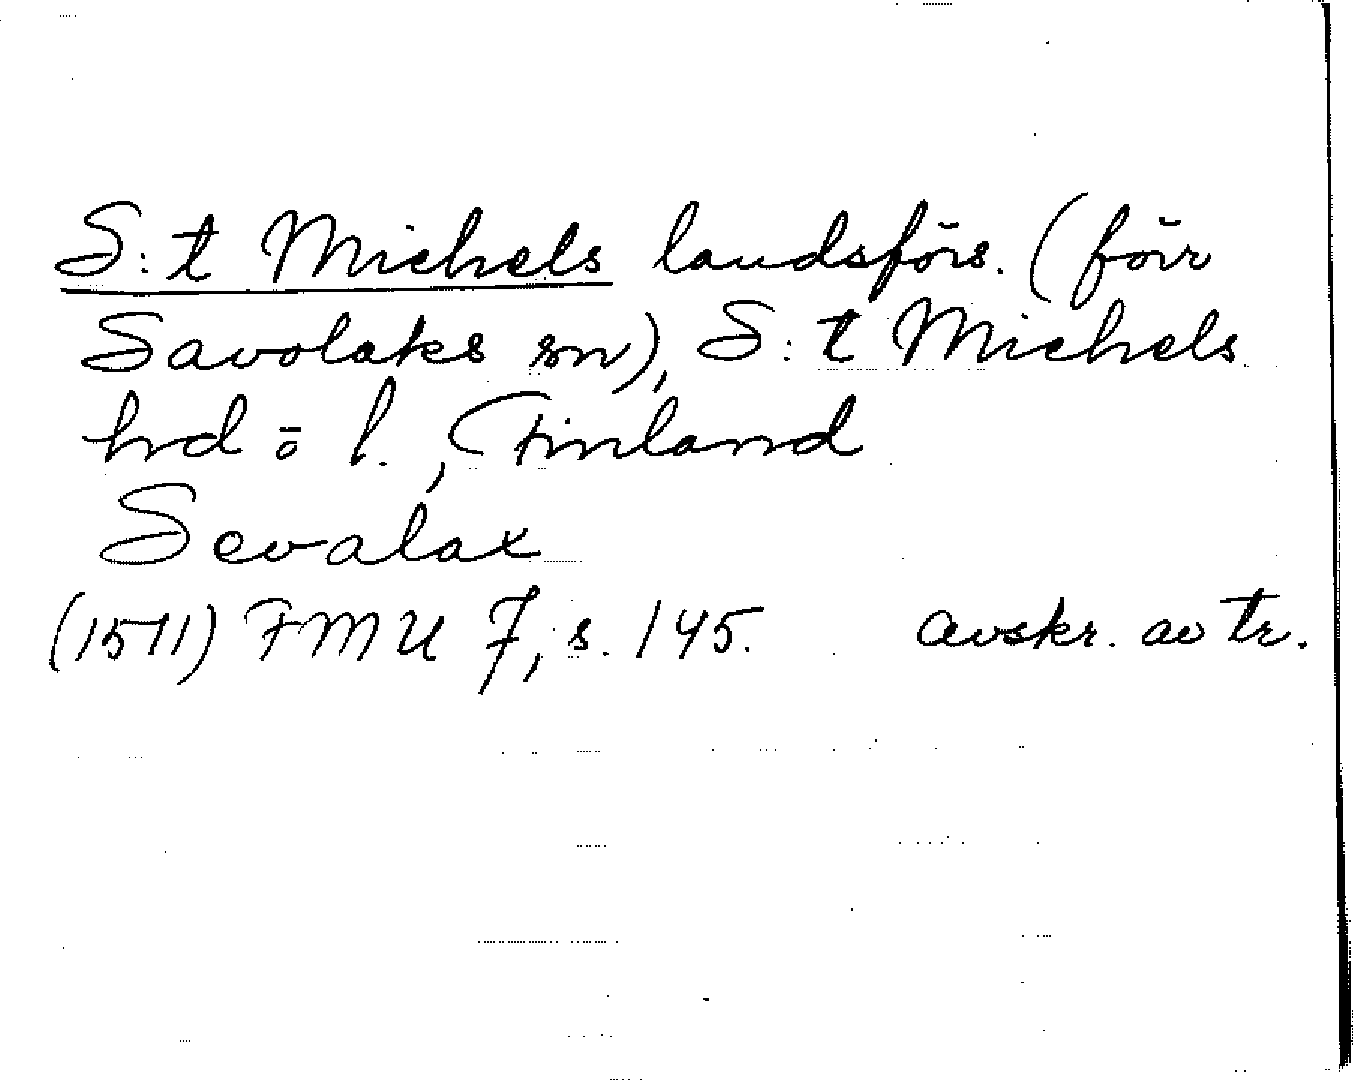 S:t Michels landsförs. (förr
Savolaks sn), S:t Michels
hrd o l., Finland
Sevalax
(1511) FMU 7, s. 145. avskr. av tr.